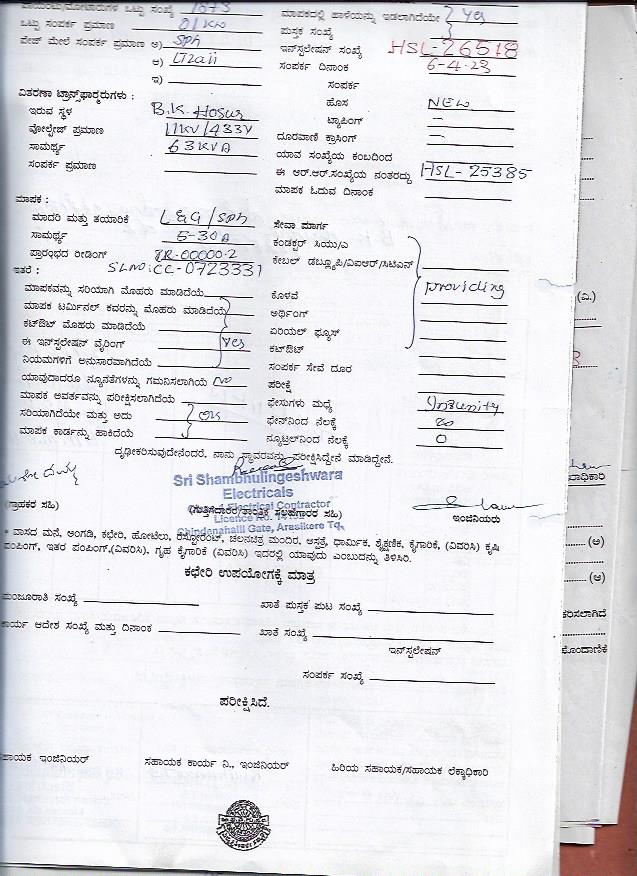 ಒಟ್ಟು ಸಂಖ್ಯೆ 1875
ಒಟ್ಟು ಸಂಪರ್ಕ ಪ್ರಮಾಣ 01 KW
ಪೇಜ್ ಮೇಲೆ ಸಂಪರ್ಕ ಪ್ರಮಾಣ ಅ) SPh
ಆ)
ಇ)
ವಿತರಣಾ ಟ್ರಾನ್ಸ್‌ಫಾರ್‍ಮರುಗಳು :
ಇರುವ ಸ್ಥಳ B.K. Hosur
ವೋಲ್ಟೇಜ್ ಪ್ರಮಾಣ 11KV/433V
ಸಾಮರ್ಥ್ಯ 63KVA
ಸಂಪರ್ಕ ಪ್ರಮಾಣ
ಮಾಪಕ :
ಮಾದರಿ ಮತ್ತು ತಯಾರಿಕೆ L&G/SPh
ಸಾಮರ್ಥ್ಯ 5-30A
ಪ್ರಾರಂಭದ ರೀಡಿಂಗ್ IR-00000.2
ಇತರೆ : SLNO: CC-0723331
ಮಾಪಕವನ್ನು ಸರಿಯಾಗಿ ಮೊಹರು ಮಾಡಿದೆಯೆ
ಮಾಪಕ ಟರ್ಮಿನಲ್ ಕವರನ್ನು ಮೊಹರು ಮಾಡಿದೆಯೆ
ಕಟ್‌ಔಟ್ ಮೊಹರು ಮಾಡಿದೆಯೆ
ಈ ಇನ್‌ಸ್ಟಲೇಷನ್ ವೈರಿಂಗ್ Yes
ನಿಯಮಗಳಿಗೆ ಅನುಸಾರವಾಗಿದೆಯೆ
ಯಾವುದಾದರೂ ನ್ಯೂನತೆಗಳನ್ನು ಗಮನಿಸಲಾಗಿಯೆ NO
ಮಾಪಕ ಆವರ್ತವನ್ನು ಪರೀಕ್ಷಿಸಲಾಗಿದೆಯೆ
ಸರಿಯಾಗಿದೆಯೇ ಮತ್ತು ಅದು OK
ಮಾಪಕ ಕಾರ್ಡನ್ನು ಹಾಕಿದೆಯೆ
ಮಾಪಕದಲ್ಲಿ ಹಾಳೆಯನ್ನು ಇಡಲಾಗಿದೆಯೇ Yes
ಪುಸ್ತಕ ಸಂಖ್ಯೆ
ಇನ್‌ಸ್ಟಲೇಷನ್ ಸಂಖ್ಯೆ HSL-26518
ಸಂಪರ್ಕ ದಿನಾಂಕ 6-4-23
ಸಂಪರ್ಕ
ಹೊಸ NEW
ಟ್ಯಾಪಿಂಗ್ —
ದೂರವಾಣಿ ಕ್ರಾಸಿಂಗ್ —
ಯಾವ ಸಂಖ್ಯೆಯ ಕಂಬದಿಂದ
ಈ ಆರ್.ಆರ್.ಸಂಖ್ಯೆಯ ನಂತರದ್ದು HSL-25385
ಮಾಪಕ ಓದುವ ದಿನಾಂಕ
ಸೇವಾ ಮಾರ್ಗ
ಕಂಡಕ್ಟರ್ ಸಿಯು/ಎ
ಕೇಬಲ್ ಡಬ್ಲ್ಯೂಪಿ/ವಿಐಆರ್/ಸಿಟಿಎಸ್
ಕೊಳವೆ Providing
ಅರ್ಥಿಂಗ್
ಏರಿಯಲ್ ಫ್ಯೂಸ್
ಕಟ್‌ಔಟ್
ಸಂಪರ್ಕ ಸೇವೆ ದೂರ
ಪರೀಕ್ಷೆ
ಫೇಸುಗಳು ಮಧ್ಯೆ Infinity
ಫೇಸ್‌ನಿಂದ ನೆಲಕ್ಕೆ ∞
ನ್ಯೂಟ್ರಲ್‌ನಿಂದ ನೆಲಕ್ಕೆ 0
ದೃಢೀಕರಿಸುವುದೇನೆಂದರೆ, ನಾನು ಸ್ಥಾವರವನ್ನು ಪರೀಕ್ಷಿಸಿದ್ದೇನೆ ಮಾಡಿದ್ದೇನೆ.
Sri Shambhulingeshwara
Electricals
Electrical Contractor
Licence No.
Chindenahalli Gate, Arasikere Tq.
(ಗ್ರಾಹಕರ ಸಹಿ)
ಇಂಜಿನಿಯರು
* ವಾಸದ ಮನೆ, ಅಂಗಡಿ, ಕಛೇರಿ, ಹೋಟೆಲು, ರೆಸ್ಟೋರೆಂಟ್, ಚಲನಚಿತ್ರ ಮಂದಿರ, ಆಸ್ಪತ್ರೆ, ಧಾರ್ಮಿಕ, ಶೈಕ್ಷಣಿಕ, ಕೈಗಾರಿಕೆ, (ವಿವರಿಸಿ) ಕೃಷಿ
ಪಂಪಿಂಗ್, ಇತರ ಪಂಪಿಂಗ್,(ವಿವರಿಸಿ). ಗೃಹ ಕೈಗಾರಿಕೆ (ವಿವರಿಸಿ) ಇದರಲ್ಲಿ ಯಾವುದು ಎಂಬುದನ್ನು ತಿಳಿಸಿರಿ.
ಕಛೇರಿ ಉಪಯೋಗಕ್ಕೆ ಮಾತ್ರ
ಮಂಜೂರಾತಿ ಸಂಖ್ಯೆ
ಖಾತೆ ಪುಸ್ತಕ ಪುಟ ಸಂಖ್ಯೆ
ಕಾರ್ಯ ಆದೇಶ ಸಂಖ್ಯೆ ಮತ್ತು ದಿನಾಂಕ
ಖಾತೆ ಸಂಖ್ಯೆ
ಇನ್‌ಸ್ಟಲೇಷನ್
ಸಂಪರ್ಕ ಸಂಖ್ಯೆ
ಪರೀಕ್ಷಿಸಿದೆ.
ಇಂಜಿನಿಯರ್
ಸಹಾಯಕ ಕಾರ್ಯ ನಿ., ಇಂಜಿನಿಯರ್
ಹಿರಿಯ ಸಹಾಯಕ/ಸಹಾಯಕ ಲೆಕ್ಕಾಧಿಕಾರಿ
(ವಿ.)
(ಅ)
(ಆ)